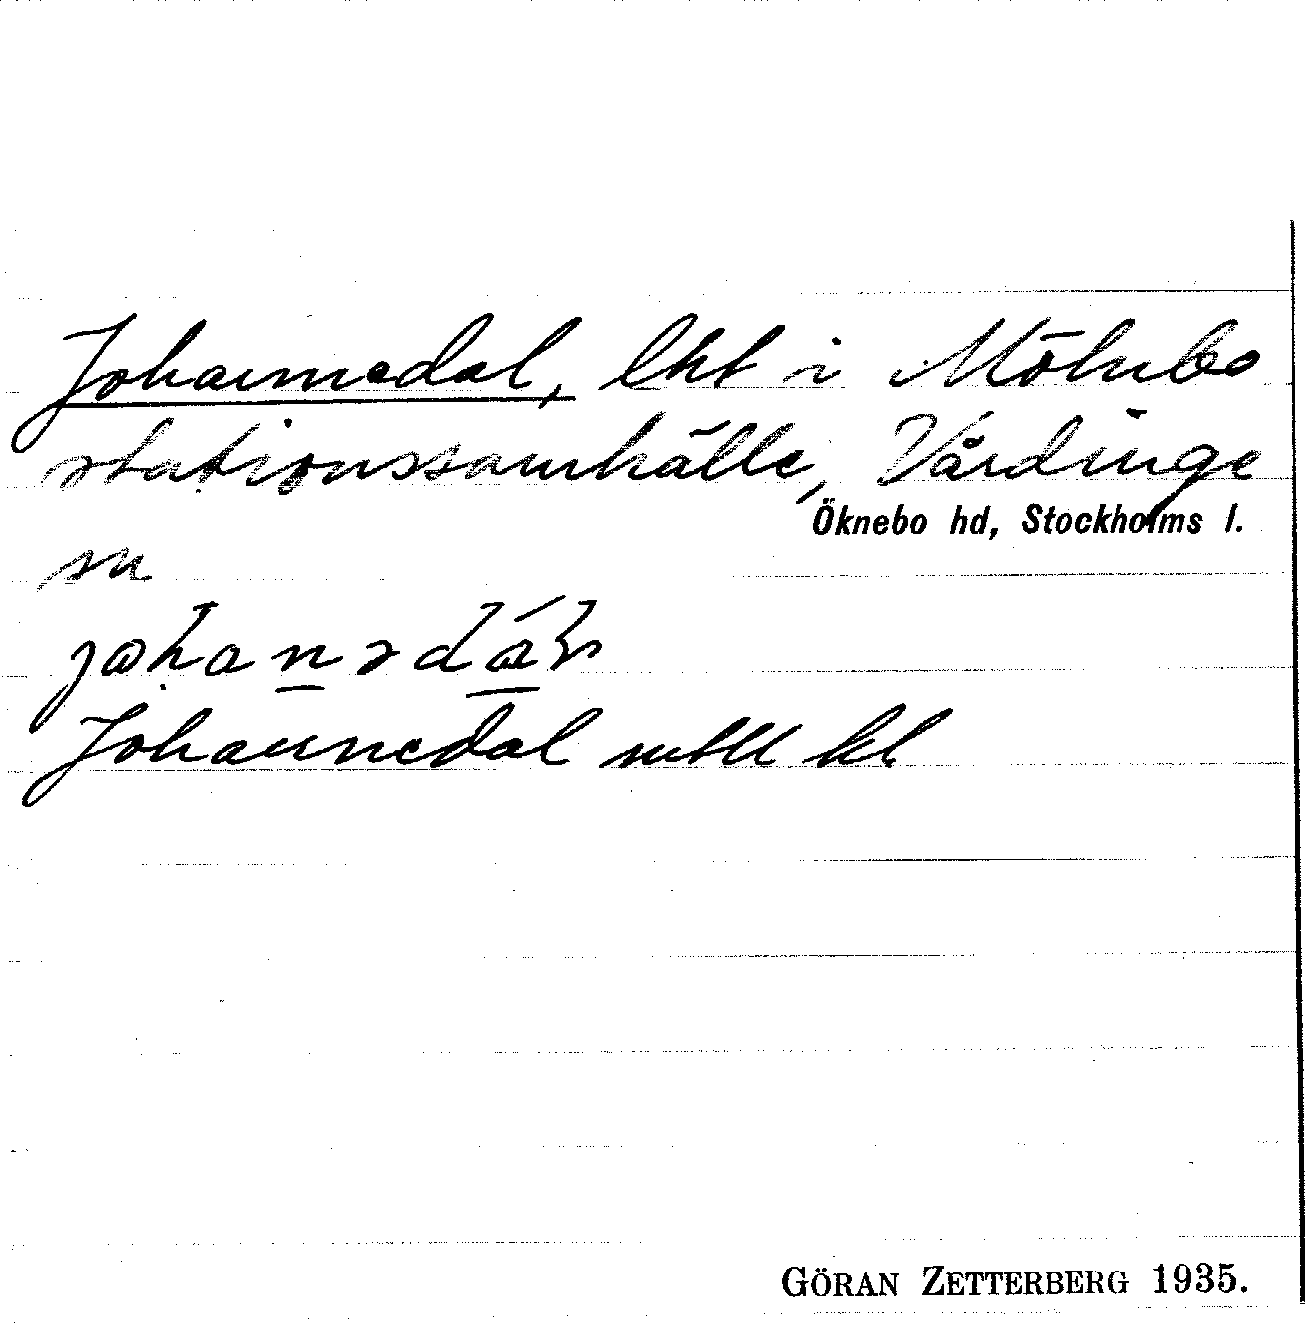 Johannedal, lht i Mölnbo
stationssamhälle, Vårdinge
Öknebo hd, Stockholms l.
sn
Johannedal mtll kl
GÖRAN ZETTERBERG 1935.